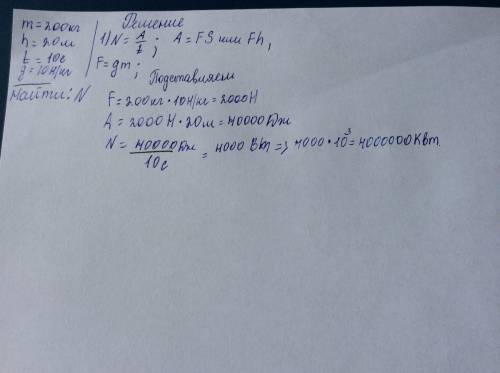 m=200кг
h=20м
t=10с
g=10Н/кг
Найти: N
Решение
1) N=A/t; A=FS или Fh,
F=gm;
Подставляем
F=200кг·10Н/кг=2000Н
A=2000Н·20м=40000Дж
N=40000Дж/10с=4000Вт=>4000·10³=4000000Квт.